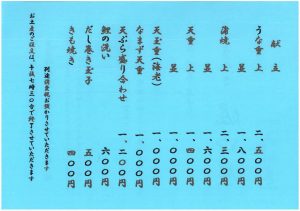 献立
うな重 上 二、五〇〇円
並 一、八〇〇円
蒲焼 上 二、三〇〇円
並 一、六〇〇円
天重 上 一、四〇〇円
並 一、〇〇〇円
天玉重(海老) 一、〇〇〇円
なまず天重 一、〇〇〇円
天ぷら盛り合わせ 一、二〇〇円
鯉の洗い 六〇〇円
だし巻き玉子 五〇〇円
きも焼き 四〇〇円
別途消費税お預かりさせていただきます
お土産のご注文は、午後七時三〇分で終了させていただきます